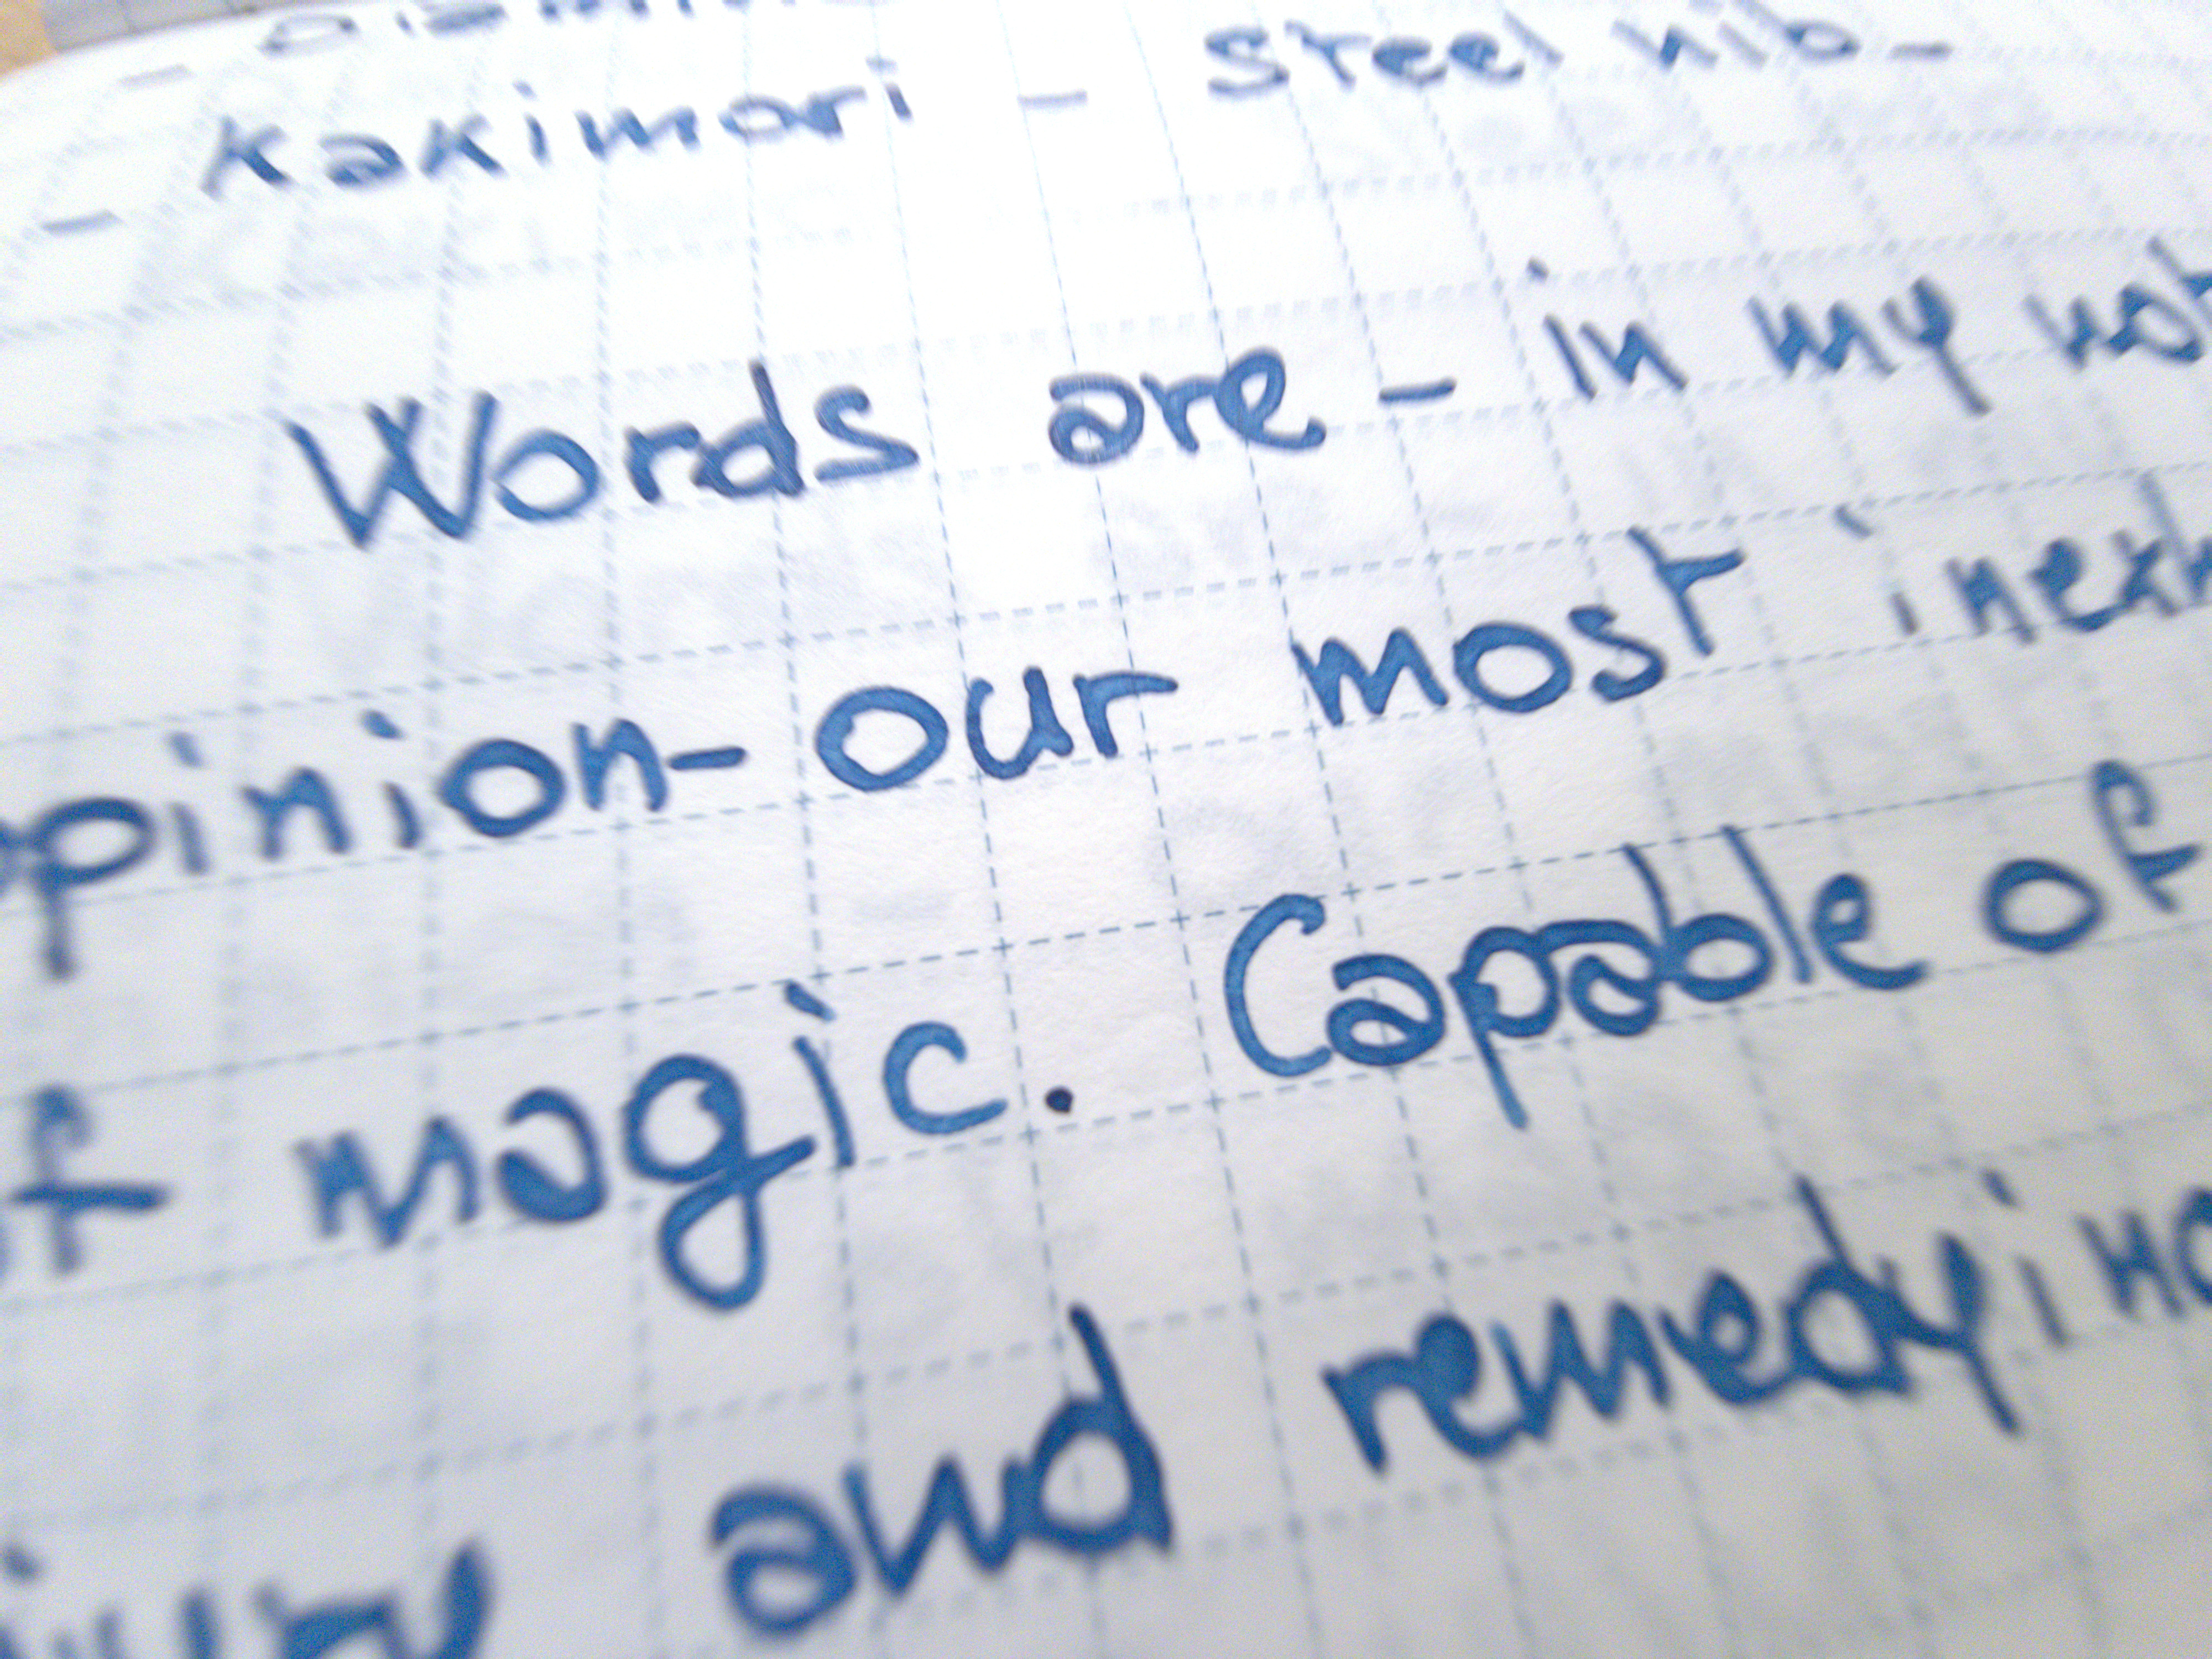 - Kakimori - Steel nib -
Words are - in my not
opinion - our most inexh
of magic. Capable of
and remedying